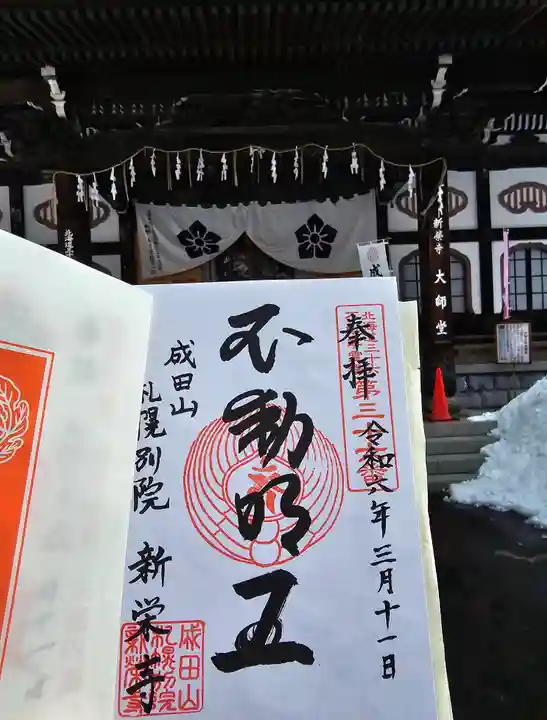 奉拝
令和六年三月十一日
不動明王
成田山
札幌別院 新栄寺
北海道三十六
不動尊霊場
第三十六番
成田山
札幌別院
新栄寺
新栄寺 大師堂
成